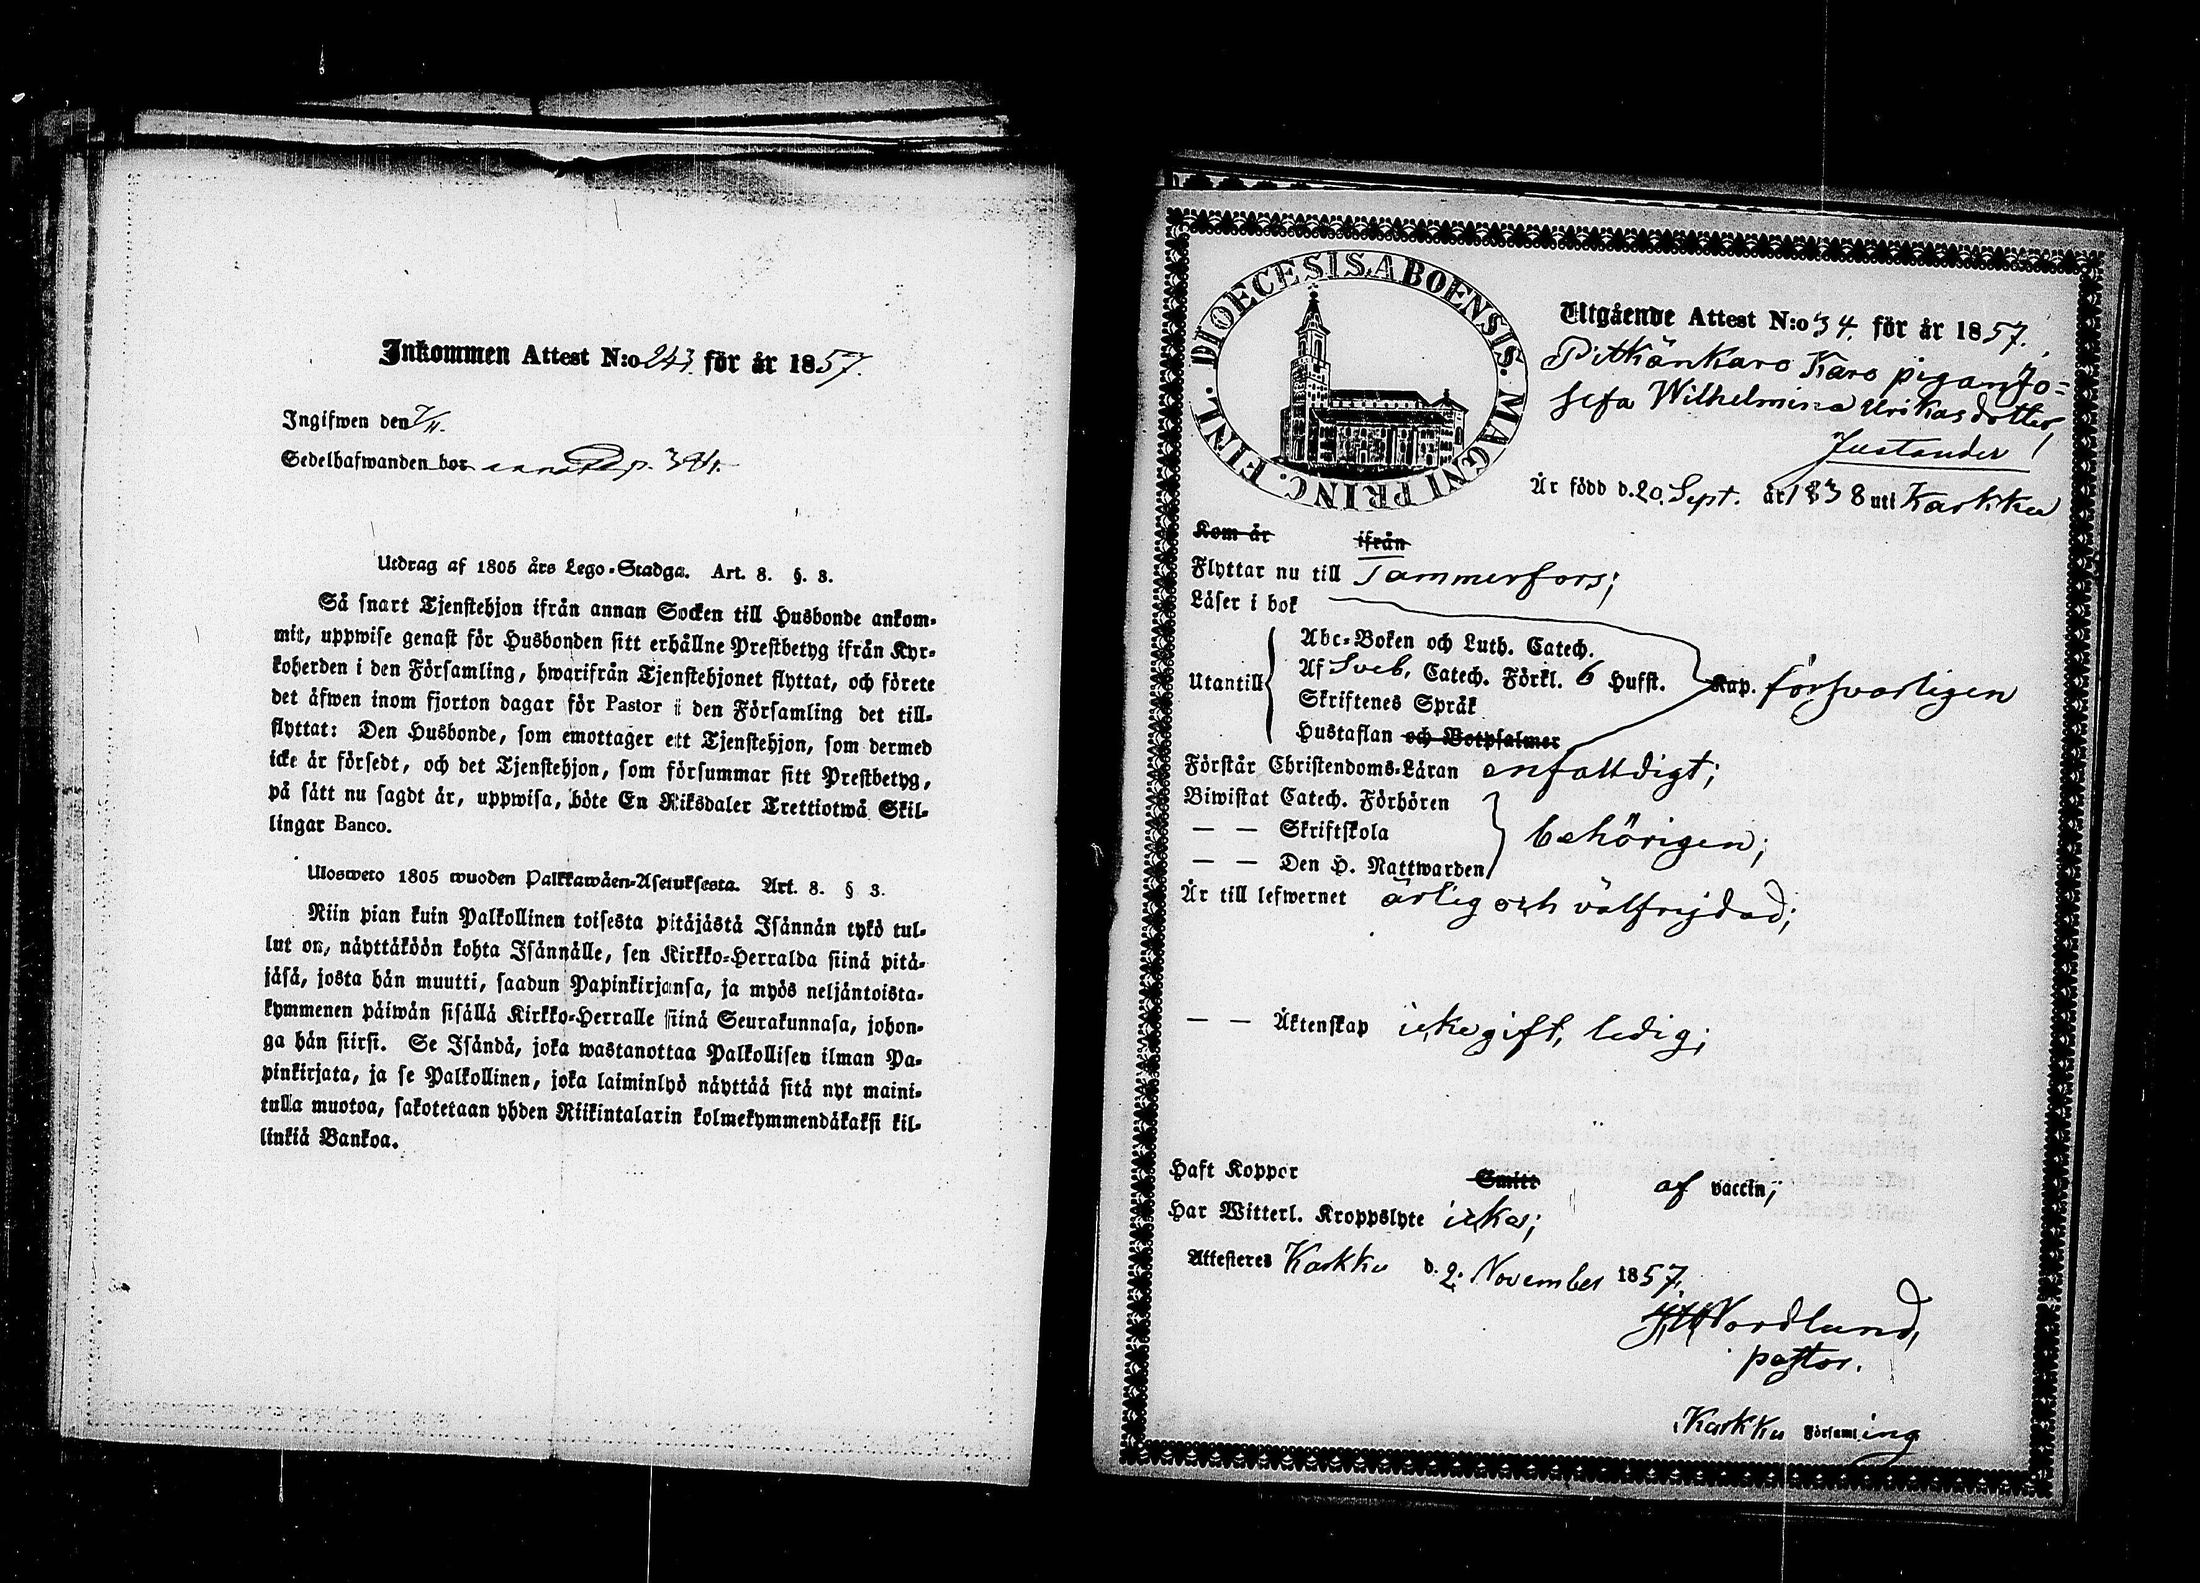 Inkommen Attest N:o 243. för år 1857.
Ingifwen den 7/11.
Sedelhafwanden bor annot. p. 381.
Utdrag af 1805 års Lego-Stadga. Art. 8. §. 3.
Så snart Tjenstehjon ifrån annan Socken till Husbonde ankom-
mit, uppwise genast för Husbonden sitt erhållne Prestbetyg ifrån Kyr-
koherden i den Församling, hwarifrån Tjenstehjonet flyttat, och förete
det äfwen inom fjorton dagar för Pastor i den Församling det till-
flyttat: Den Husbonde, som emottager ett Tjenstehjon, som dermed
icke är försedt, och det Tjenstehjon, som försummar sitt Prestbetyg,
på sätt nu sagdt är, uppwisa, böte En Riksdaler Trettiotwå Skil-
lingar Banco.
Ulosweto 1805 wuoden Palkkawäen-Asetuksesta. Art. 8. § 3.
Niin pian kuin Palkollinen toisesta pitäjästä Isännän tykö tul-
lut on, näyttäköön kohta Isännälle, sen Kirkko-Herralda siinä pitä-
jäsä, josta hän muutti, saadun Papinkirjansa, ja myös neljäntoista-
kymmenen päiwän sisällä Kirkko-Herralle siinä Seurakunnasa, johon-
ga hän siirsi. Se Isändä, joka wastanottaa Palkollisen ilman Pa-
pinkirjata, ja se Palkollinen, joka laiminlyö näyttää sitä nyt maini-
tulla muotoa, sakotetaan yhden Riikintalarin kolmekymmendäkaksi kil-
linkiä Bankoa.
DIOECESIS ABOENSIS. MAGNI PRINC. FINL.
Utgående Attest N:o 34. för år 1857.
Pitkänkaro Karo pigan Jo=
sefa Wilhelmina Ulrikasdotter
Justander
Är född d. 20. Sept. år 1838 uti Karkku
Kom år ifrån
Flyttar nu till Tammerfors;
Läser i bok
Abc-Boken och Luth. Catech.
Utantill Af Sveb. Catech. Förkl. 6 Hufst. Kap. försvarligen
Skriftenes Språk
Hustaflan och Botpsalmer
Förstår Christendoms-Läran enfalldigt;
Biwistat Catech. Förhören
— — Skriftskola behörigen;
— — Den H. Nattwarden
Är till lefwernet ärlig och välfrejdad;
— — Äktenskap icke gift, ledig;
Haft Koppor Smitt af vaccin;
Har Witterl. Kroppslyte icke;
Attesteres Karkku d. 2. November 1857.
Nordlund,
pastor.
Karkku Församling